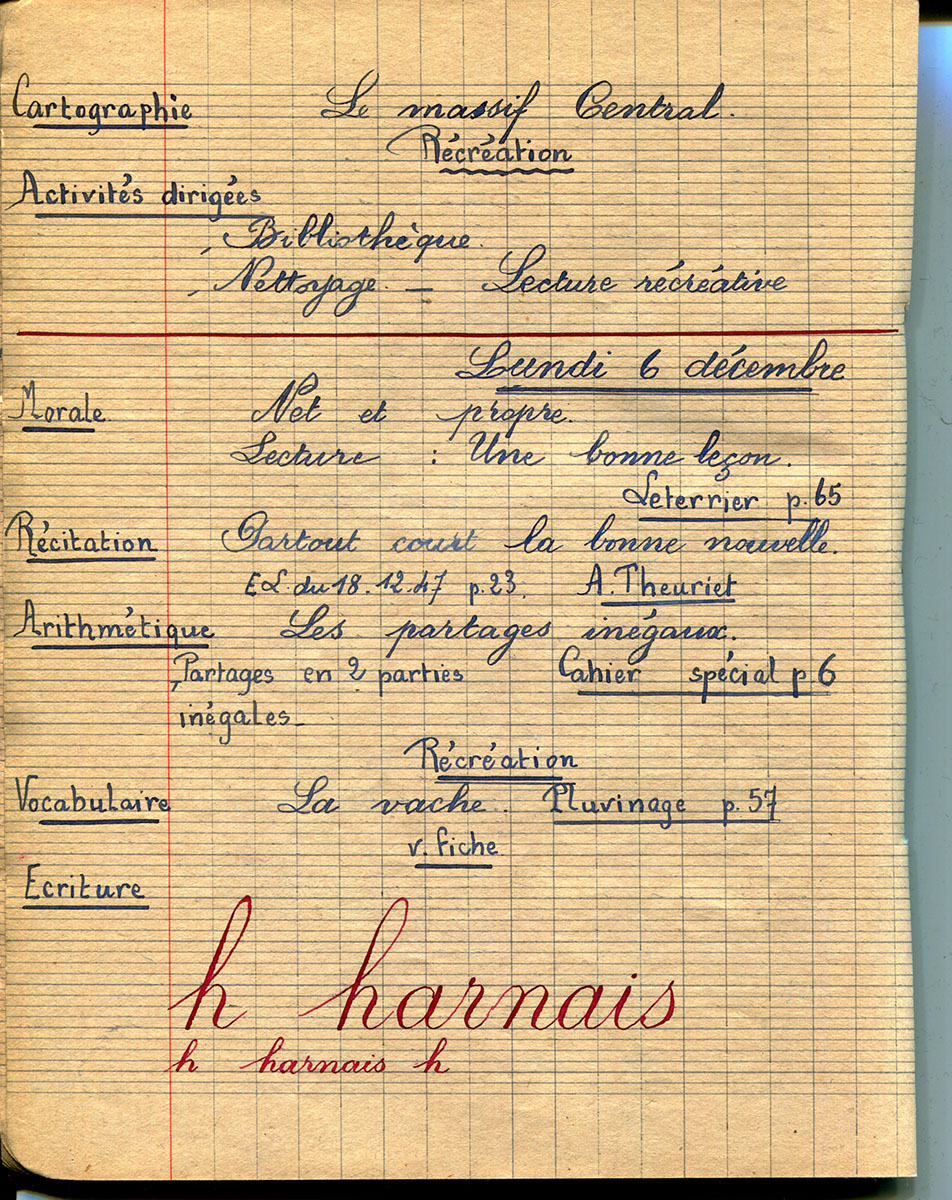 Cartographie Le massif Central.
Récréation
Activités dirigées
- Bibliothèque.
- Nettoyage. - Lecture récréative
Lundi 6 décembre
Morale. Net et propre.
Lecture : Une bonne leçon.
Leterrier p. 65
Récitation Partout court la bonne nouvelle.
E.L. du 18.12.47 p.23. A. Theuriet
Arithmétique Les partages inégaux.
Partages en 2 parties Cahier spécial p 6
inégales_
Récréation
Vocabulaire La vache. Pluvinage p. 57
v. fiche
Ecriture
h harnais
h harnais h